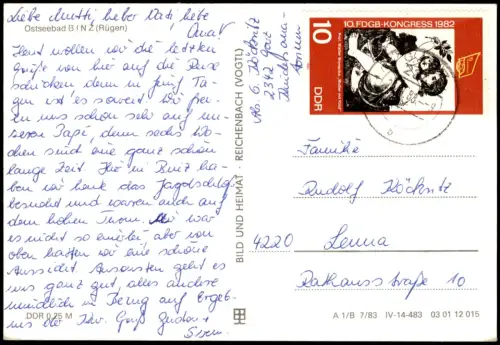 Liebe Mutti, lieber Vati, liebe
Ostseebad BINZ (Rügen)
Heut wollen wir die letzten
Grüße von hier auf die Reise
schicken denn in fünf Ta-
gen ist es soweit. Wir freu-
en uns schon sehr auf un-
seren Papi, denn sechs Wo-
chen sind eine ganz schön
lange Zeit. Hier in Binz ha-
ben wir heute das Jagdschloß
besucht und waren auch auf
dem hohen Turm. war
es nicht so aber von
oben hatten wir eine schöne
Aussicht. Ansonsten geht es
uns ganz gut, alles andere
mündlich in Bezug auf Ergeb-
nis der Kur. Gruß +
DDR 0,25 M
BILD UND HEIMAT · REICHENBACH (VOGTL)
Abs. G. Köckritz
2342
10. FDGB-KONGRESS 1982
10
DDR
Familie
Rudolf Köckritz
4220 Leuna
Rathausstraße 10
A 1/B 7/83 IV-14-483 03 01 12 015